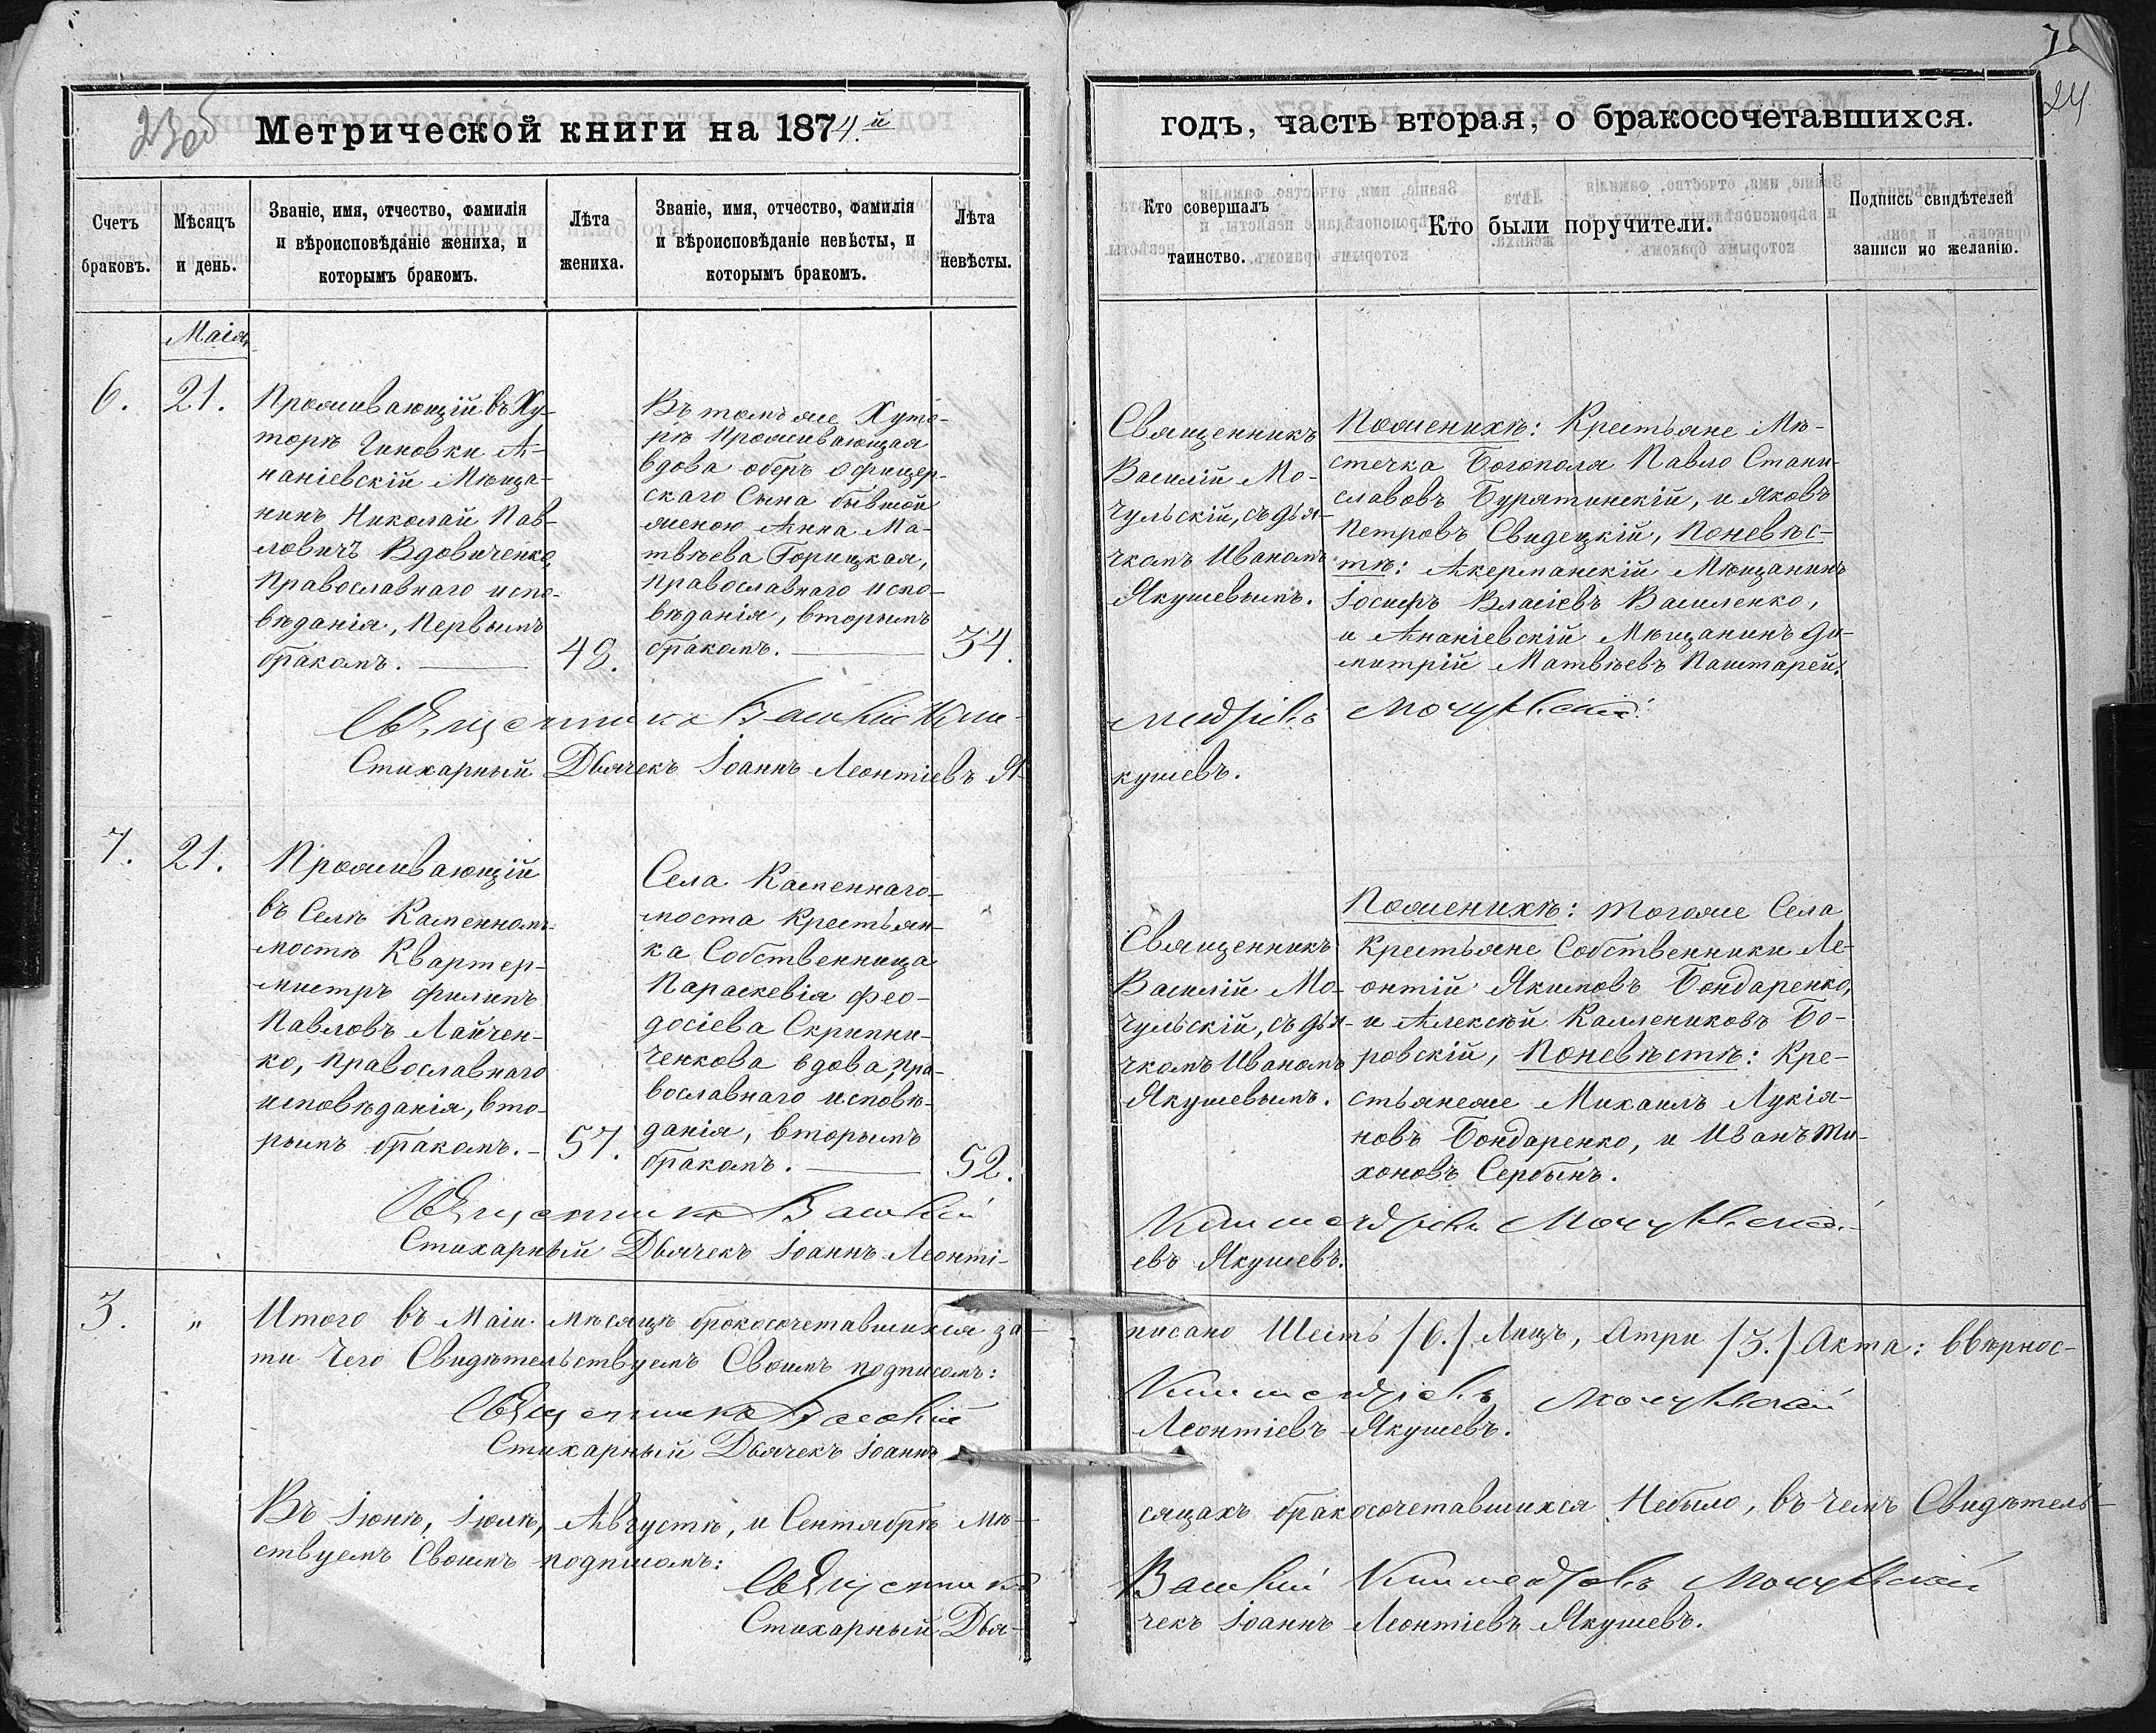 Метрической книги на 1874.й
годъ, часть вторая, о бракосочетавшихся.
24
Счетъ браковъ.
Мѣсяцъ и день.
Званіе, имя, отчество, фамилія
и вѣроисповѣданіе жениха, и
которымъ бракомъ.
Лѣта
жениха.
Званіе, имя, отчество, фамилія
и вѣроисповѣданіе невѣсты, и
которымъ бракомъ.
Лѣта
невѣсты.
Кто совершалъ
таинство.
Кто были поручители.
Подпись свидѣтелей
записи по желанію.
Маія
6.
21.
Проживающій въ Ху-
торѣ Гиновки А-
наніевскій Мѣща-
нинъ Николай Пав-
ловичъ Вдовиченко,
Православнаго испо-
вѣданія, Первымъ
бракомъ.
48.
Въ томъ же Хуто-
рѣ Проживающая
вдова оберъ офицер-
скаго Сына бывшой
женою Анна Ма-
твѣева Горицкая,
православнаго испо-
вѣданія, вторымъ
бракомъ.
34.
Священникъ
Василій Мо-
чульскій, съ дья-
чкомъ Иваномъ
Якушевымъ.
Поженихѣ: Крестьяне Мѣ-
стечка Богополя Павло Стани-
славовъ Бурятинскій, и Яковъ
Петровъ Свидецкій, Поневѣс-
тѣ: Акерманскій Мѣщанинъ
Іосифъ Власіевъ Василенко,
и Ананіевскій Мѣщанинъ Ди-
митрій Матвѣевъ Паштарей.
Священникъ Василій
Мочульскій
Стихарный Дьячекъ Іоаннъ Леонтіевъ Я-
кушевъ.
7.
21.
Проживающій
въ Селѣ Каменномъ-
мостѣ Квартер-
мистръ Филипъ
Павловъ Лайчен-
ко, православнаго
исповѣданія, вто-
рымъ бракомъ.
57.
Села Каменнаго-
моста Крестьян-
ка Собственница
Параскевія Фео-
досіева Скрипни-
ченкова вдова, пра-
вославнаго исповѣ-
данія, вторымъ
бракомъ.
52.
Священникъ
Василій Мо-
чульскій, съ дья-
чкомъ Иваномъ
Якушевымъ.
Поженихѣ: Тогоже Села
Крестьяне Собственники Ле-
онтій Якимовъ Бондаренко,
и Алексѣй Каллениковъ Бо-
ровскій, Поневѣстѣ: Кре-
стьянеже Михаилъ Лукія-
новъ Бондаренко, и Иванъ Ти-
хоновъ Сербынъ.
Священникъ Василій
Мочульскій
Стихарный Дьячекъ Іоаннъ Леонті-
евъ Якушевъ.
3.
"
Итого въ Маіи мѣсяцѣ бракосочетавшихся за-
писано Шесть /6./ Лицъ, Атри /3./ Акта: ввѣрнос-
ти Чего Свидѣтельствуемъ Своимъ подписомъ:
Священникъ Василій
Мочульскій
Стихарный Дьячекъ Іоаннъ
Леонтіевъ Якушевъ.
Въ Іюнѣ, Іюлѣ, Августѣ, и Сентябрѣ мѣ-
сяцахъ бракосочетавшихся Небыло, въ чемъ Свидѣтель-
ствуемъ Своимъ подписомъ:
Священникъ
Василій Мочульскій
Стихарный Дья-
чекъ Іоаннъ Леонтіевъ Якушевъ.